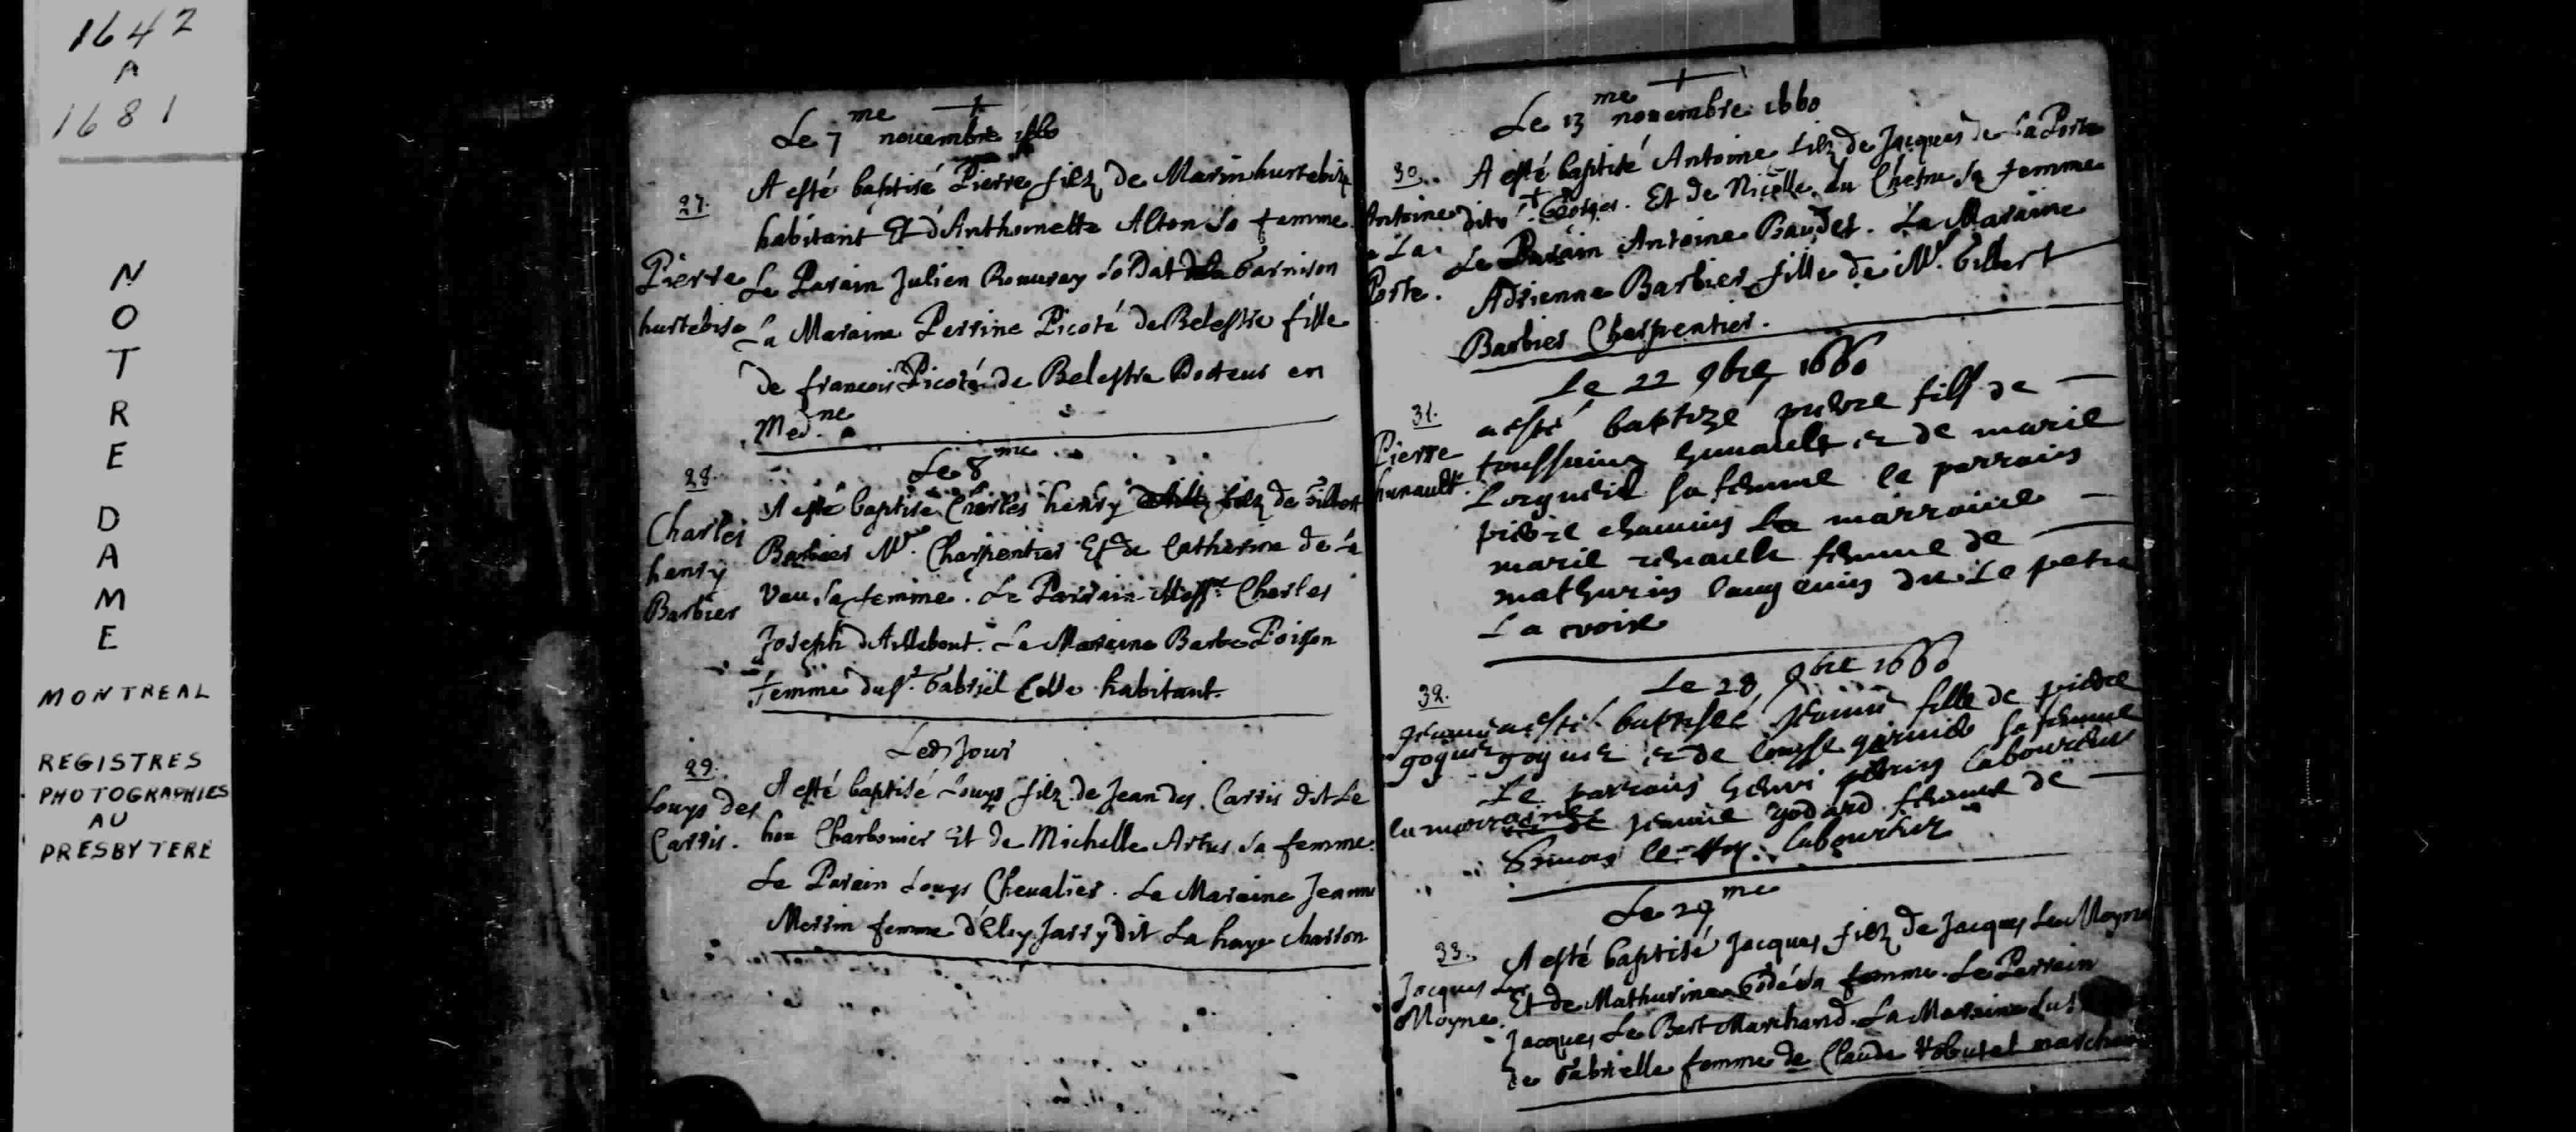 1642
A
1681
NOTRE DAME
MONTREAL
REGISTRES
PHOTOGRAPHIES
AU
PRESBYTERE
Le 7me novembre 1660
27.
Pierre
hurtebise
A esté baptisé Pierre filz de Marin hurtebize
habitant Et d'Anthoinette Alton sa femme
Le Parain Julien soldat de la Garnison
La Maraine Perrine Picoté de Belestre fille
de francois Picoté de Belestre Docteur en
Med.ne
Le 8me
28.
Charles
henry
Barbier
A esté baptisé Charles henry filz de Gilbert
Barbier Mr. Charpentier Et de Catherine de la
Vau sa femme. Le Parrain Messr. Charles
Joseph d'Aillebout. La Maraine Barbe Poisson
femme du Sr. Gabriel Celle habitant.
Led. Jour
29.
Louys des
Carris.
A esté baptisé Louys filz de Jean des Carris dit Le
hou Charbonier Et de Michelle Artus sa femme.
Le Parain Louys Chevalier. La Maraine Jeanne
Merrin femme d'Eloy Jarry dit La haye charron
Le 13me novembre 1660
30.
Antoine
e La
Porte.
A esté baptisé Antoine filz de Jacques de La Porte
dit St. Georges. Et de Nicolle du Chesne sa femme
Le Parain Antoine Baudet. La Maraine
Adrienne Barbier fille de Mr. Gilbert
Barbier Charpentier.
Le 22 9bre 1660
31.
Pierre
hunault.
a esté baptizé pierre fils de
toussaint hunault, et de marie
Lorgueil sa femme le parrain
pierre chauvin La marraine
marie renaulde femme de
mathurin langevin dit Le petit
La croix
Le 28, 9bre 1660
32.
Jeanne
goguet
a esté baptisée Jeanne fille de pierre
goguet et de Louyse garnier sa femme
Le parrain henri perrin laboureur
la marraine Jeanne godard femme de
Simon le Roy. laboureur
Le 29me
33.
Jacques Le
Moyne.
A esté baptisé Jacques filz de Jacques Le Moyne
Et de Mathurine Godé sa femme. Le Parrain
Jacques Le Bert Marchand. La Maraine fut
de Gabrielle femme de Claude Robutel marchand